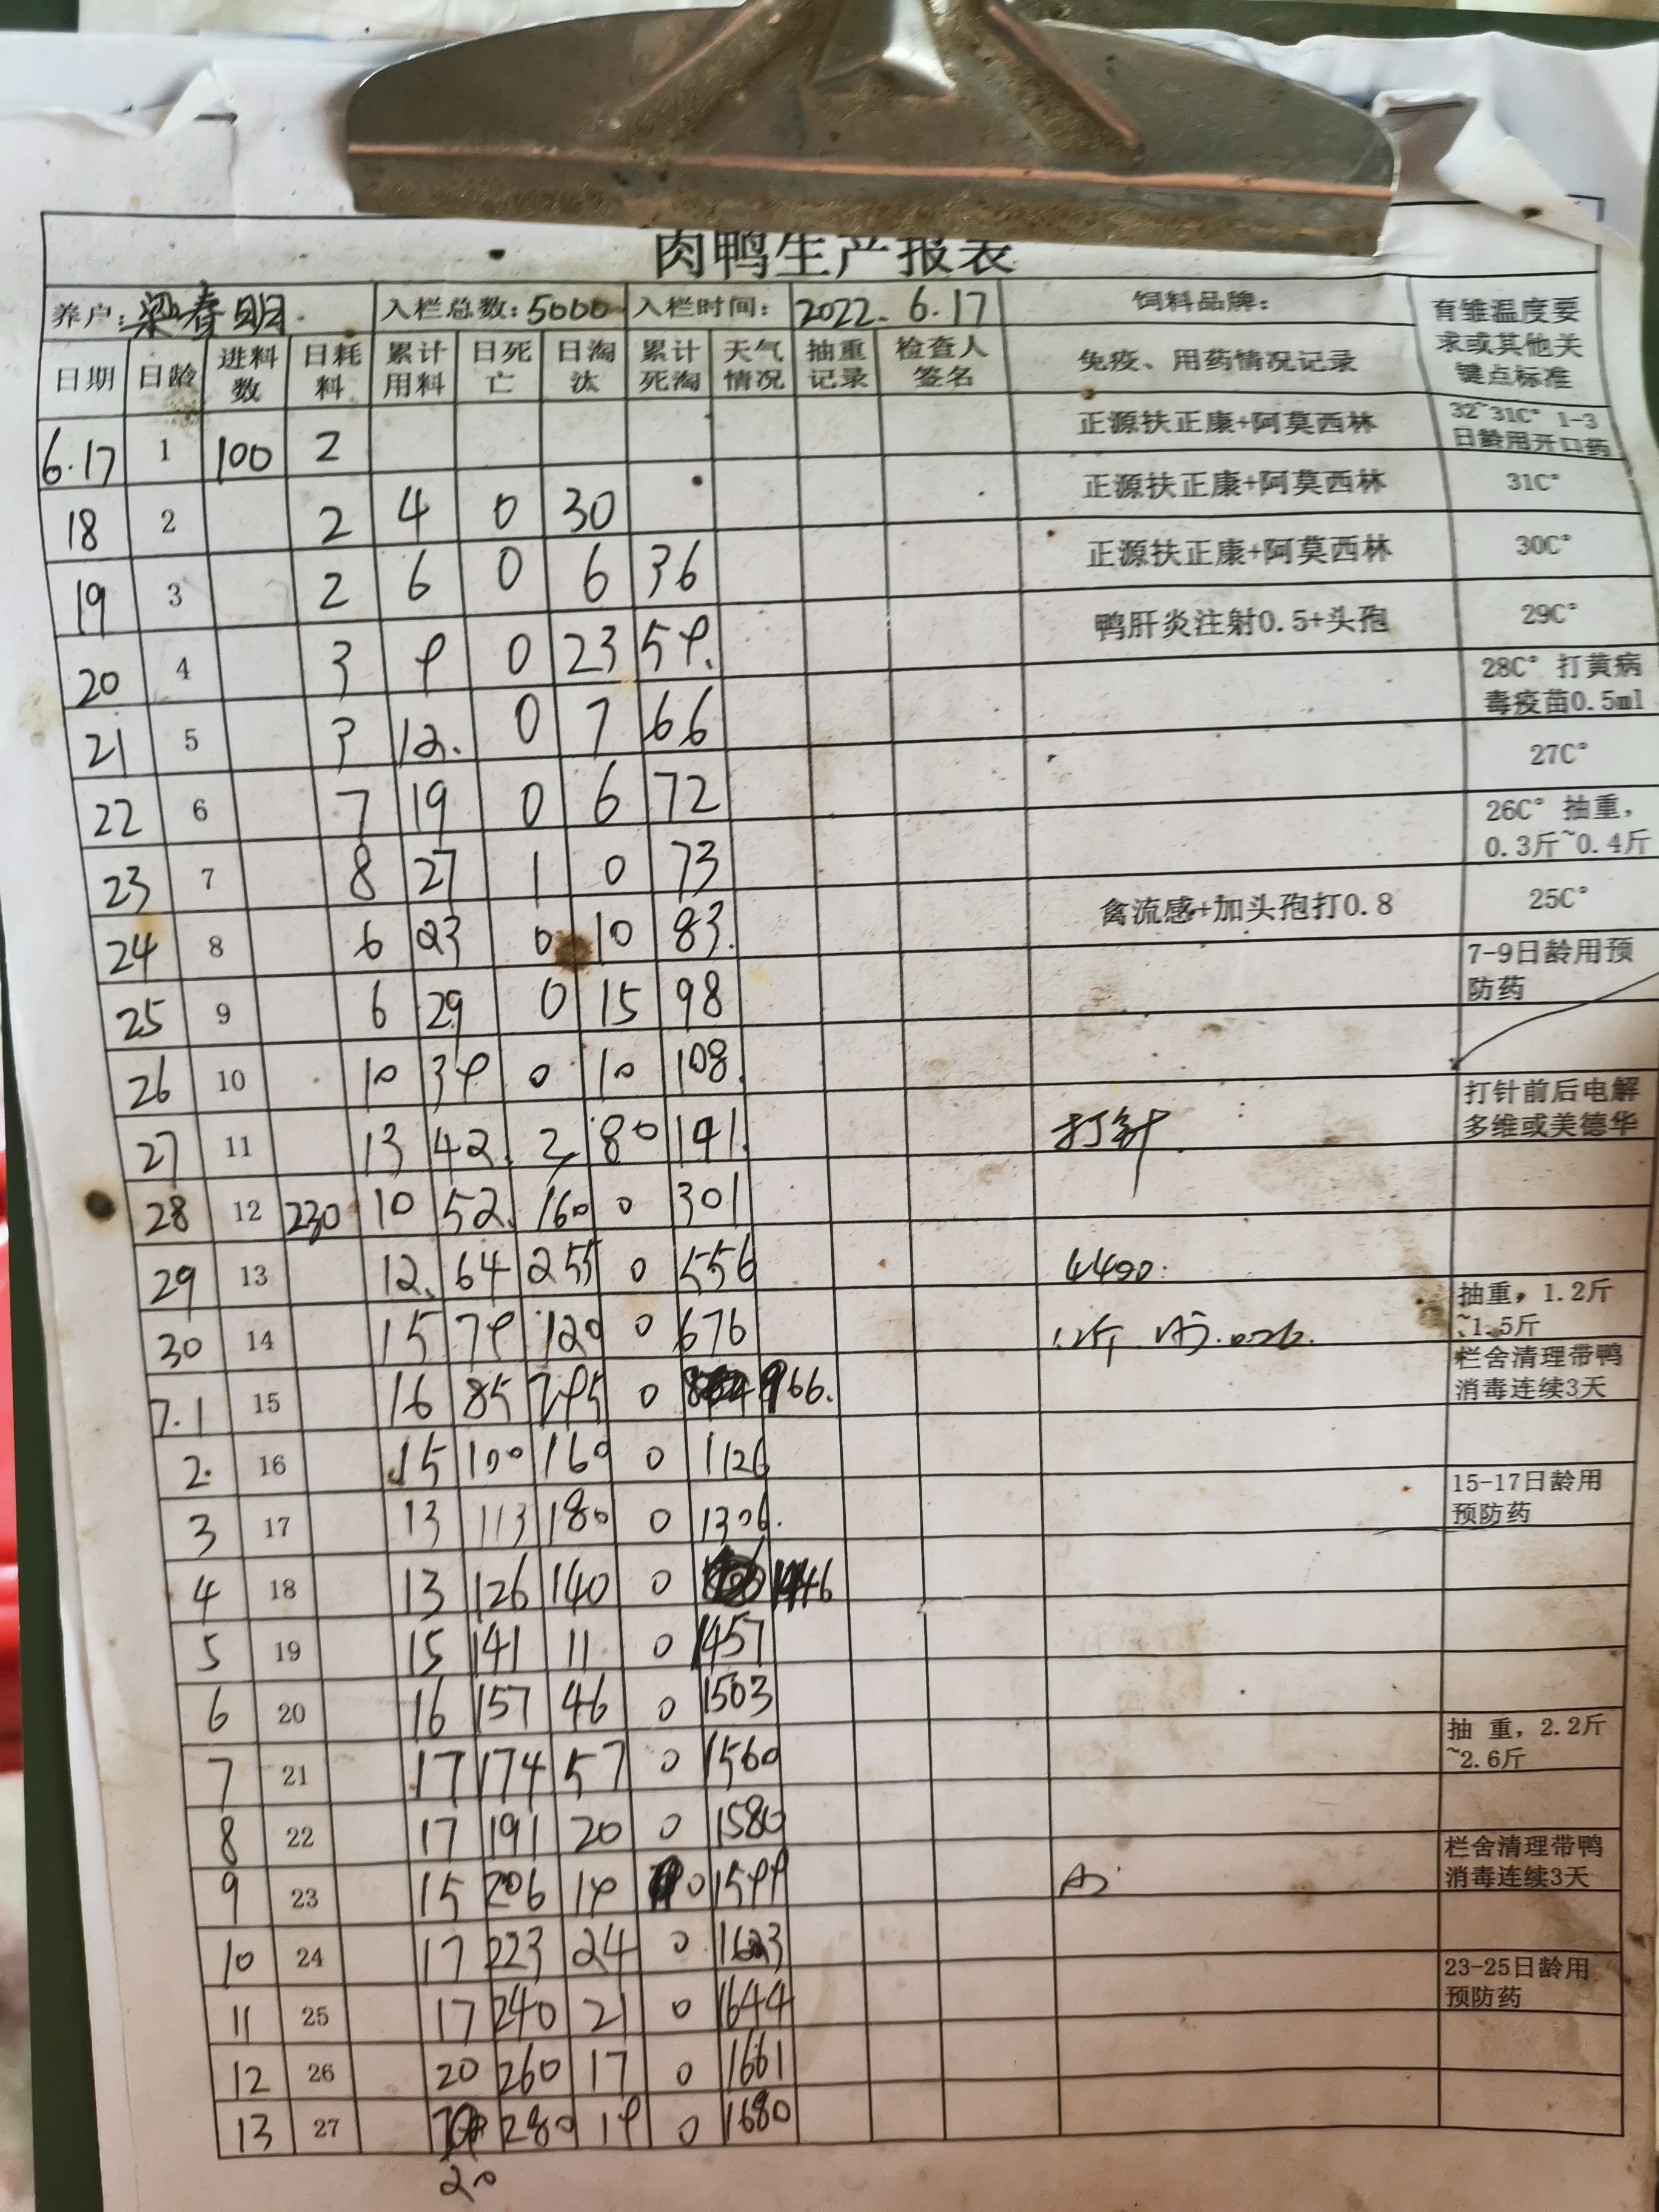 肉鸭生产报表
养户: 梁春明 入栏总数: 5000 入栏时间: 2022. 6.17 饲料品牌: 育雏温度要求或其他关键点标准
日期 日龄 进料数 日耗料 累计用料 日死亡 日淘汰 累计死淘 天气情况 抽重记录 检查人签名 免疫、用药情况记录
6.17 1 100 2 正源扶正康+阿莫西林 32~31C° 1-3日龄用开口药
18 2 2 4 0 30 正源扶正康+阿莫西林 31C°
19 3 2 6 0 6 36 正源扶正康+阿莫西林 30C°
20 4 3 9 0 23 59. 鸭肝炎注射0.5+头孢 29C°
21 5 3 12. 0 7 66 28C° 打黄病毒疫苗0.5ml
22 6 7 19 0 6 72 27C°
23 7 8 27 1 0 73 26C° 抽重, 0.3斤~0.4斤
24 8 6 23 0 10 83. 禽流感+加头孢打0.8 25C°
25 9 6 29 0 15 98 7-9日龄用预防药
26 10 10 39 0 10 108.
27 11 13 42. 2 80 191. 打针 打针前后电解多维或美德华
28 12 230 10 52. 160 0 301
29 13 12. 64 255 0 556 4490.
30 14 15 79 120 0 676 抽重, 1.2斤~1.5斤
7.1 15 16 85 295 0 966. 栏舍清理带鸭消毒连续3天
2. 16 15 100 160 0 1126
3 17 13 113 180 0 1306. 15-17日龄用预防药
4 18 13 126 140 0 1446
5 19 15 141 11 0 1457
6 20 16 157 46 0 1503
7 21 17 174 57 0 1560 抽 重, 2.2斤~2.6斤
8 22 17 191 20 0 1580
9 23 15 206 19 0 1599 栏舍清理带鸭消毒连续3天
10 24 17 223 24 0 1623
11 25 17 240 21 0 1644 23-25日龄用预防药
12 26 20 260 17 0 1661
13 27 20 280 19 0 1680